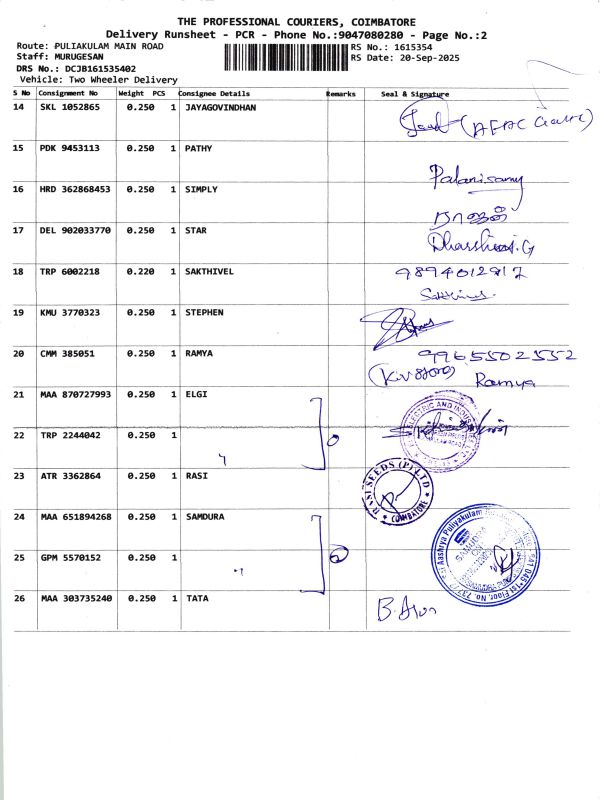 THE PROFESSIONAL COURIERS, COIMBATORE
Delivery Runsheet - PCR - Phone No.:9047080280 - Page No.:2
Route: PULIAKULAM MAIN ROAD
Staff: MURUGESAN
DRS No.: DCJB161535402
Vehicle: Two Wheeler Delivery
RS No.: 1615354
RS Date: 20-Sep-2025
S No Consignment No Weight PCS Consignee Details Remarks Seal & Signature
14 SKL 1052865 0.250 1 JAYAGOVINDHAN
15 PDK 9453113 0.250 1 PATHY
Palanisamy
16 HRD 362868453 0.250 1 SIMPLY
17 DEL 902033770 0.250 1 STAR
18 TRP 6002218 0.220 1 SAKTHIVEL
19 KMU 3770323 0.250 1 STEPHEN
20 CMM 385051 0.250 1 RAMYA 9965502552
Ramya
21 MAA 870727993 0.250 1 ELGI
22 TRP 2244042 0.250 1
23 ATR 3362864 0.250 1 RASI
RASI SEEDS (P) LTD
COIMBATORE
24 MAA 651894268 0.250 1 SAMDURA
25 GPM 5570152 0.250 1
26 MAA 303735240 0.250 1 TATA
B. Arun